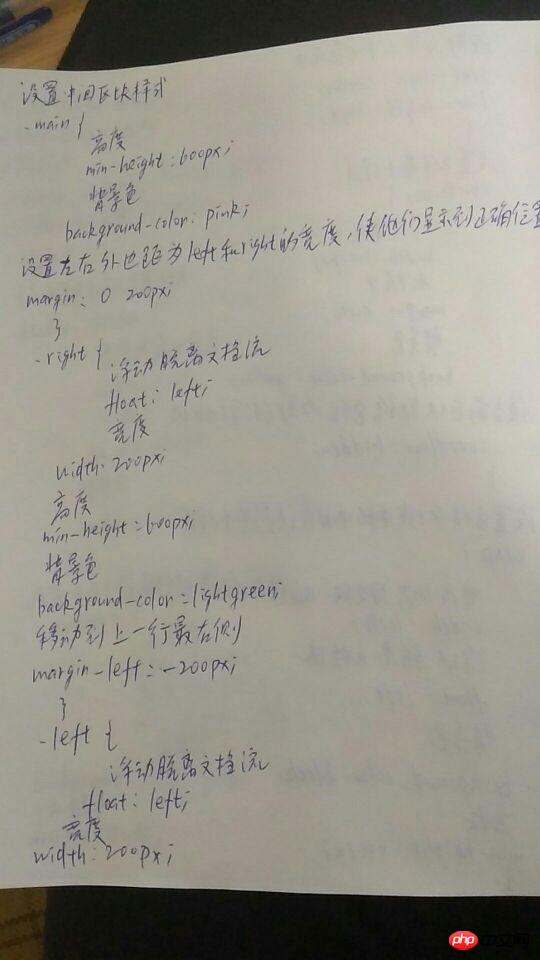 设置中间区块样式
.main {
高度
min-height:600px;
背景色
background-color: pink;
设置左右外边距为left和right的宽度,使他们显示到正确位置
margin: 0 200px;
}
.right {
浮动脱离文档流
float: left;
宽度
width: 200px;
高度
min-height:600px;
背景色
background-color:lightgreen;
移动到上一行最右侧
margin-left:-200px;
}
.left {
浮动脱离文档流
float: left;
宽度
width:200px;
php 中文网